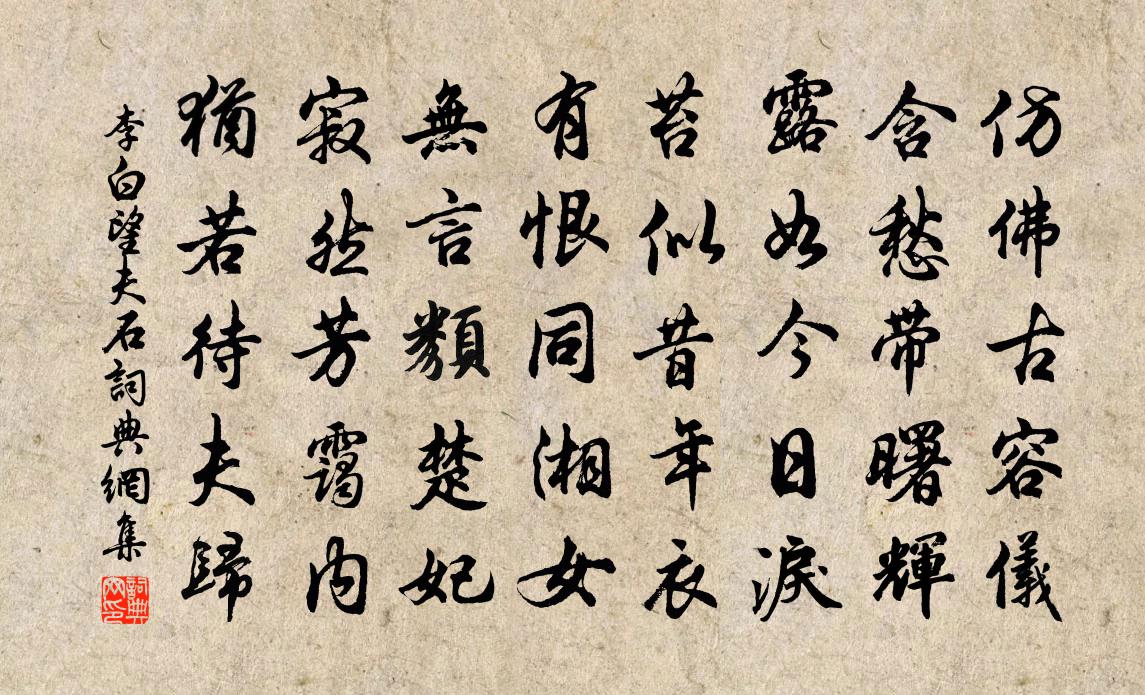 仿佛古容儀
含愁帶曙輝
露如今日淚
苔似昔年衣
有恨同湘女
無言類楚妃
寂然芳靄內
猶若待夫歸
李白望夫石詞典網集
詞典网印